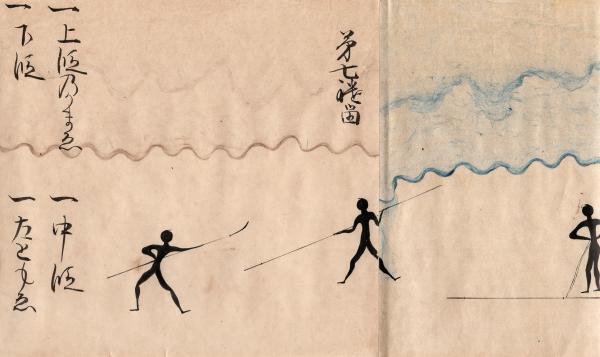 第七
一上段乃まゑ
一中段
一下段
一左ともゑ